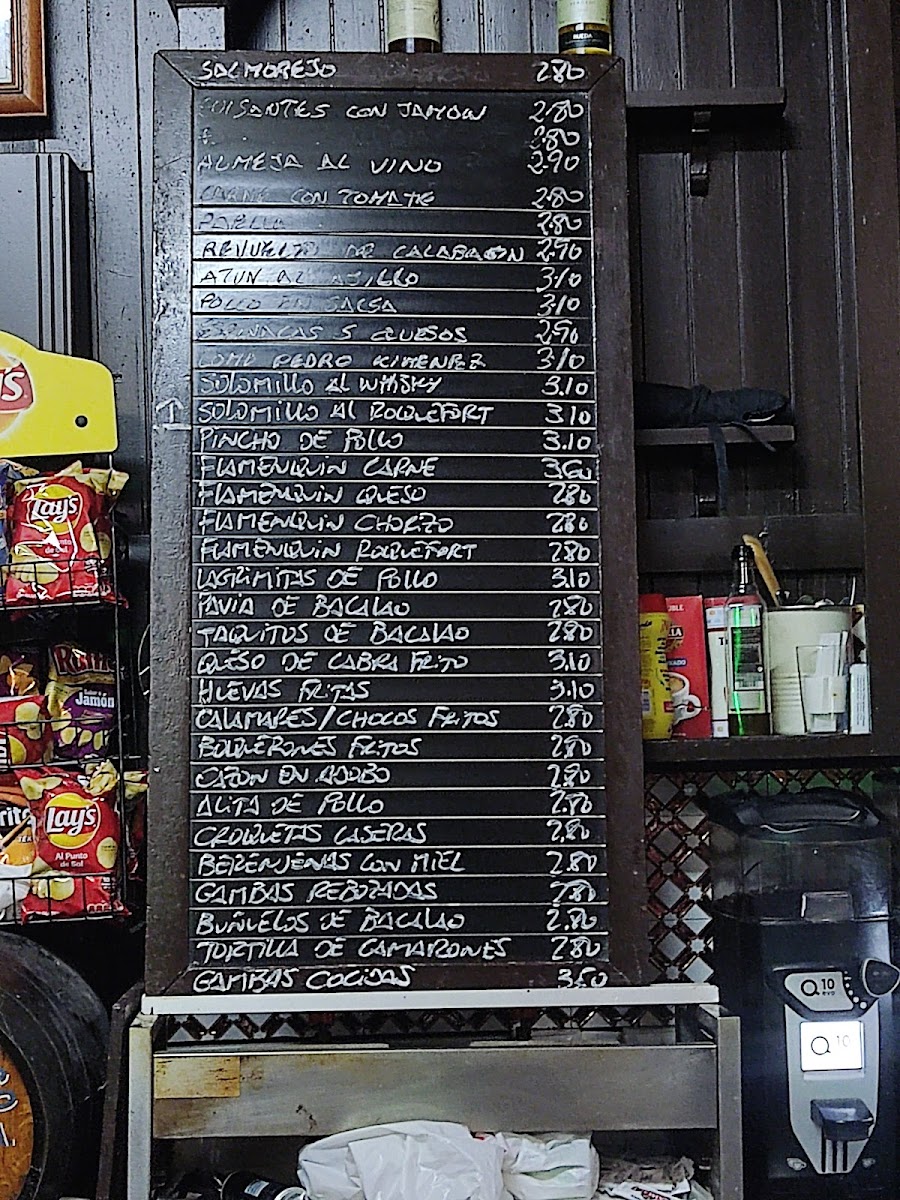 RUEDA
SALMOREJO 2'80
GUISANTES CON JAMON 2'80
2'80
ALMEJA AL VINO 2'90
CARNE CON TOMATE 2'80
PAELLA 2'80
REVUELTO DE CALABACIN 2'90
ATUN AL 3'10
POLLO EN SALSA 3'10
ESPINACAS 5 QUESOS 2'90
LOMO PEDRO XIMENEZ 3'10
SOLOMILLO AL WHISKY 3.10
SOLOMILLO AL ROQUEFORT 3.10
PINCHO DE POLLO 3.10
FLAMENQUIN CARNE 3'60
FLAMENQUIN QUESO 2'80
FLAMENQUIN CHORIZO 2'80
FLAMENQUIN ROQUEFORT 2'80
LAGRIMITAS DE POLLO 3.10
PAVIA DE BACALAO 2'80
TAQUITOS DE BACALAO 2'80
QUESO DE CABRA FRITO 3.10
HUEVAS FRITAS 3.10
CALAMARES/CHOCOS FRITOS 2'80
BOQUERONES FRITOS 2'80
CAZON EN ADOBO 2.80
ALITA DE POLLO 2.80
CROQUETAS CASERAS 2.80
BERENJENAS CON MIEL 2.80
GAMBAS REBOZADAS 2'80
BUÑUELOS DE BACALAO 2.80
TORTILLA DE CAMARONES 2'80
GAMBAS COCIDAS 3.50
Lay's
Punto de Sal
Jamón
Lay's
Al Punto de Sal
Q10 evo
Q10